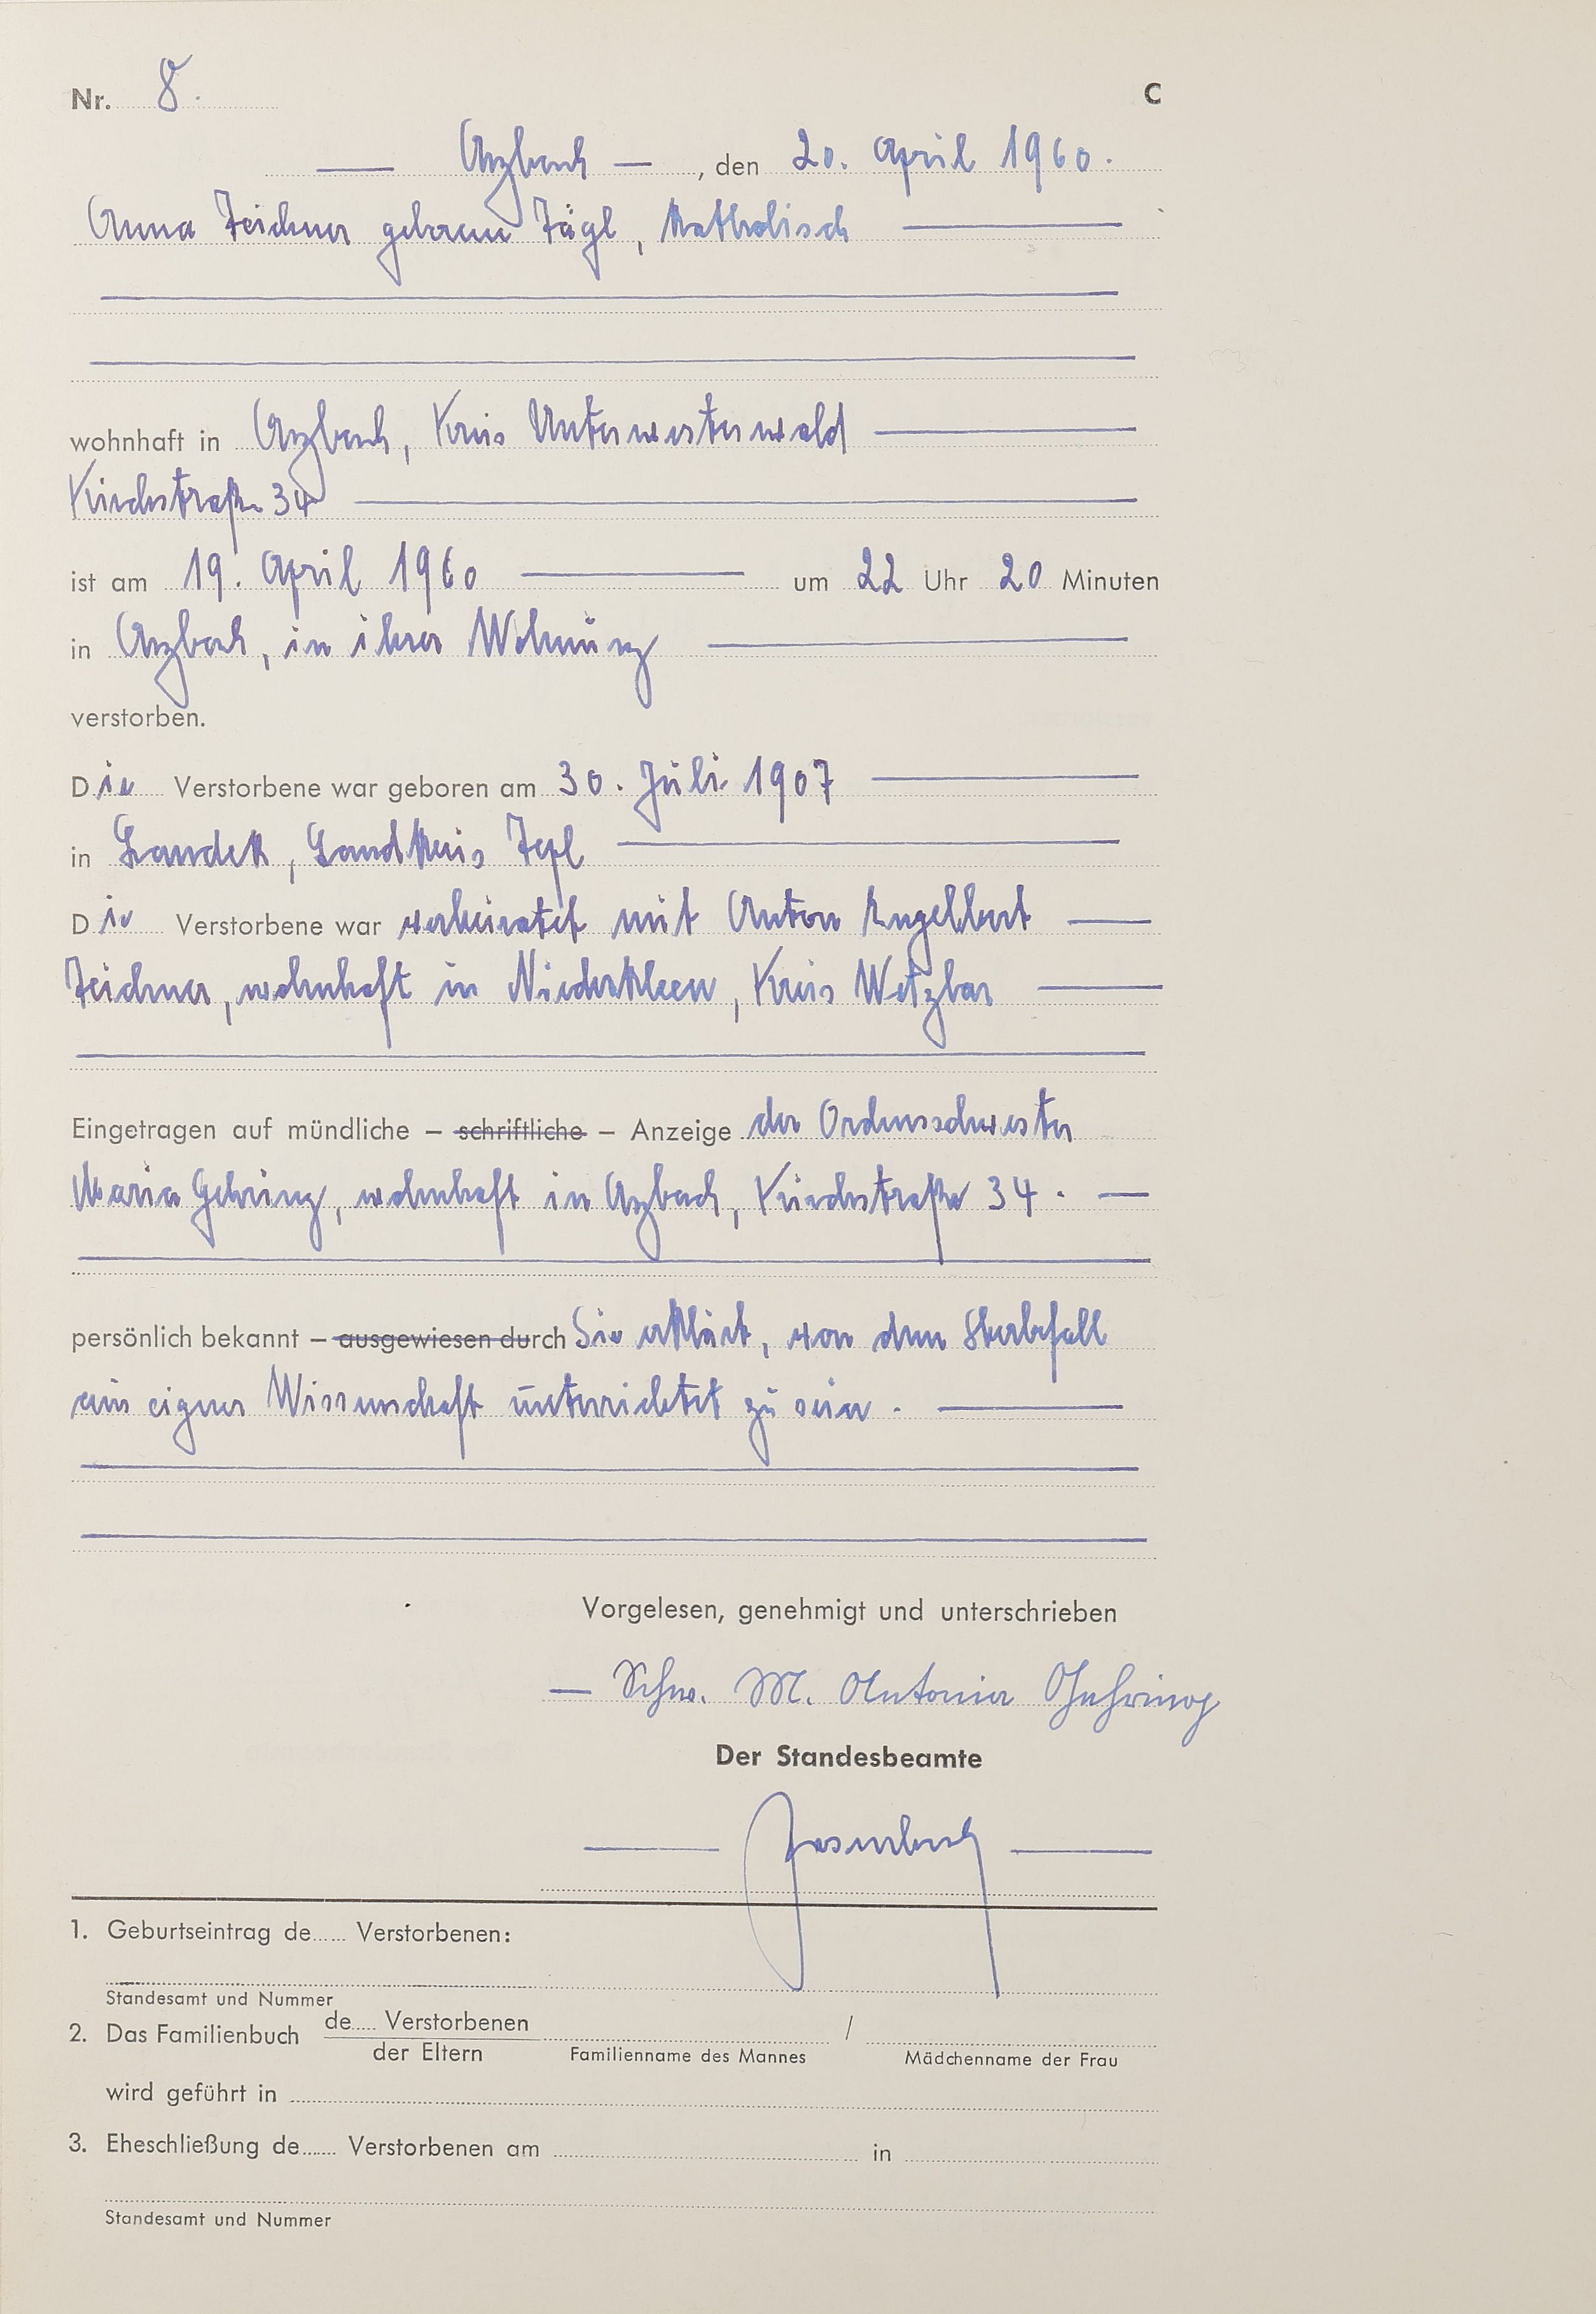 Nr. 8. C
— Arzbach — , den 20. April 1960.
Anna Zeichner geborene Jägl, Katholisch —
wohnhaft in Arzbach, Kreis Unterwesterwald —
Kirchstraße 34 —
ist am 19. April 1960 — um 22 Uhr 20 Minuten
in Arzbach, in ihrer Wohnung —
verstorben.
Die Verstorbene war geboren am 30. Juli 1907 —
in Landek, Landkreis Tepl —
Die Verstorbene war verheiratet mit Anton Engelbert —
Zeichner, wohnhaft in Niederkleen, Kreis Wetzlar —
Eingetragen auf mündliche – schriftliche – Anzeige der Ordensschwester
Maria Gehring, wohnhaft in Arzbach, Kirchstraße 34. —
persönlich bekannt – ausgewiesen durch Sie erklärt, von dem Sterbefall
aus eigner Wissenschaft unterrichtet zu sein. —
Vorgelesen, genehmigt und unterschrieben
— Schw. M. Antonia Gehring
Der Standesbeamte
1. Geburtseintrag de..... Verstorbenen:
Standesamt und Nummer
2. Das Familienbuch de..... Verstorbenen /
der Eltern Familienname des Mannes Mädchenname der Frau
wird geführt in
3. Eheschließung de..... Verstorbenen am in
Standesamt und Nummer